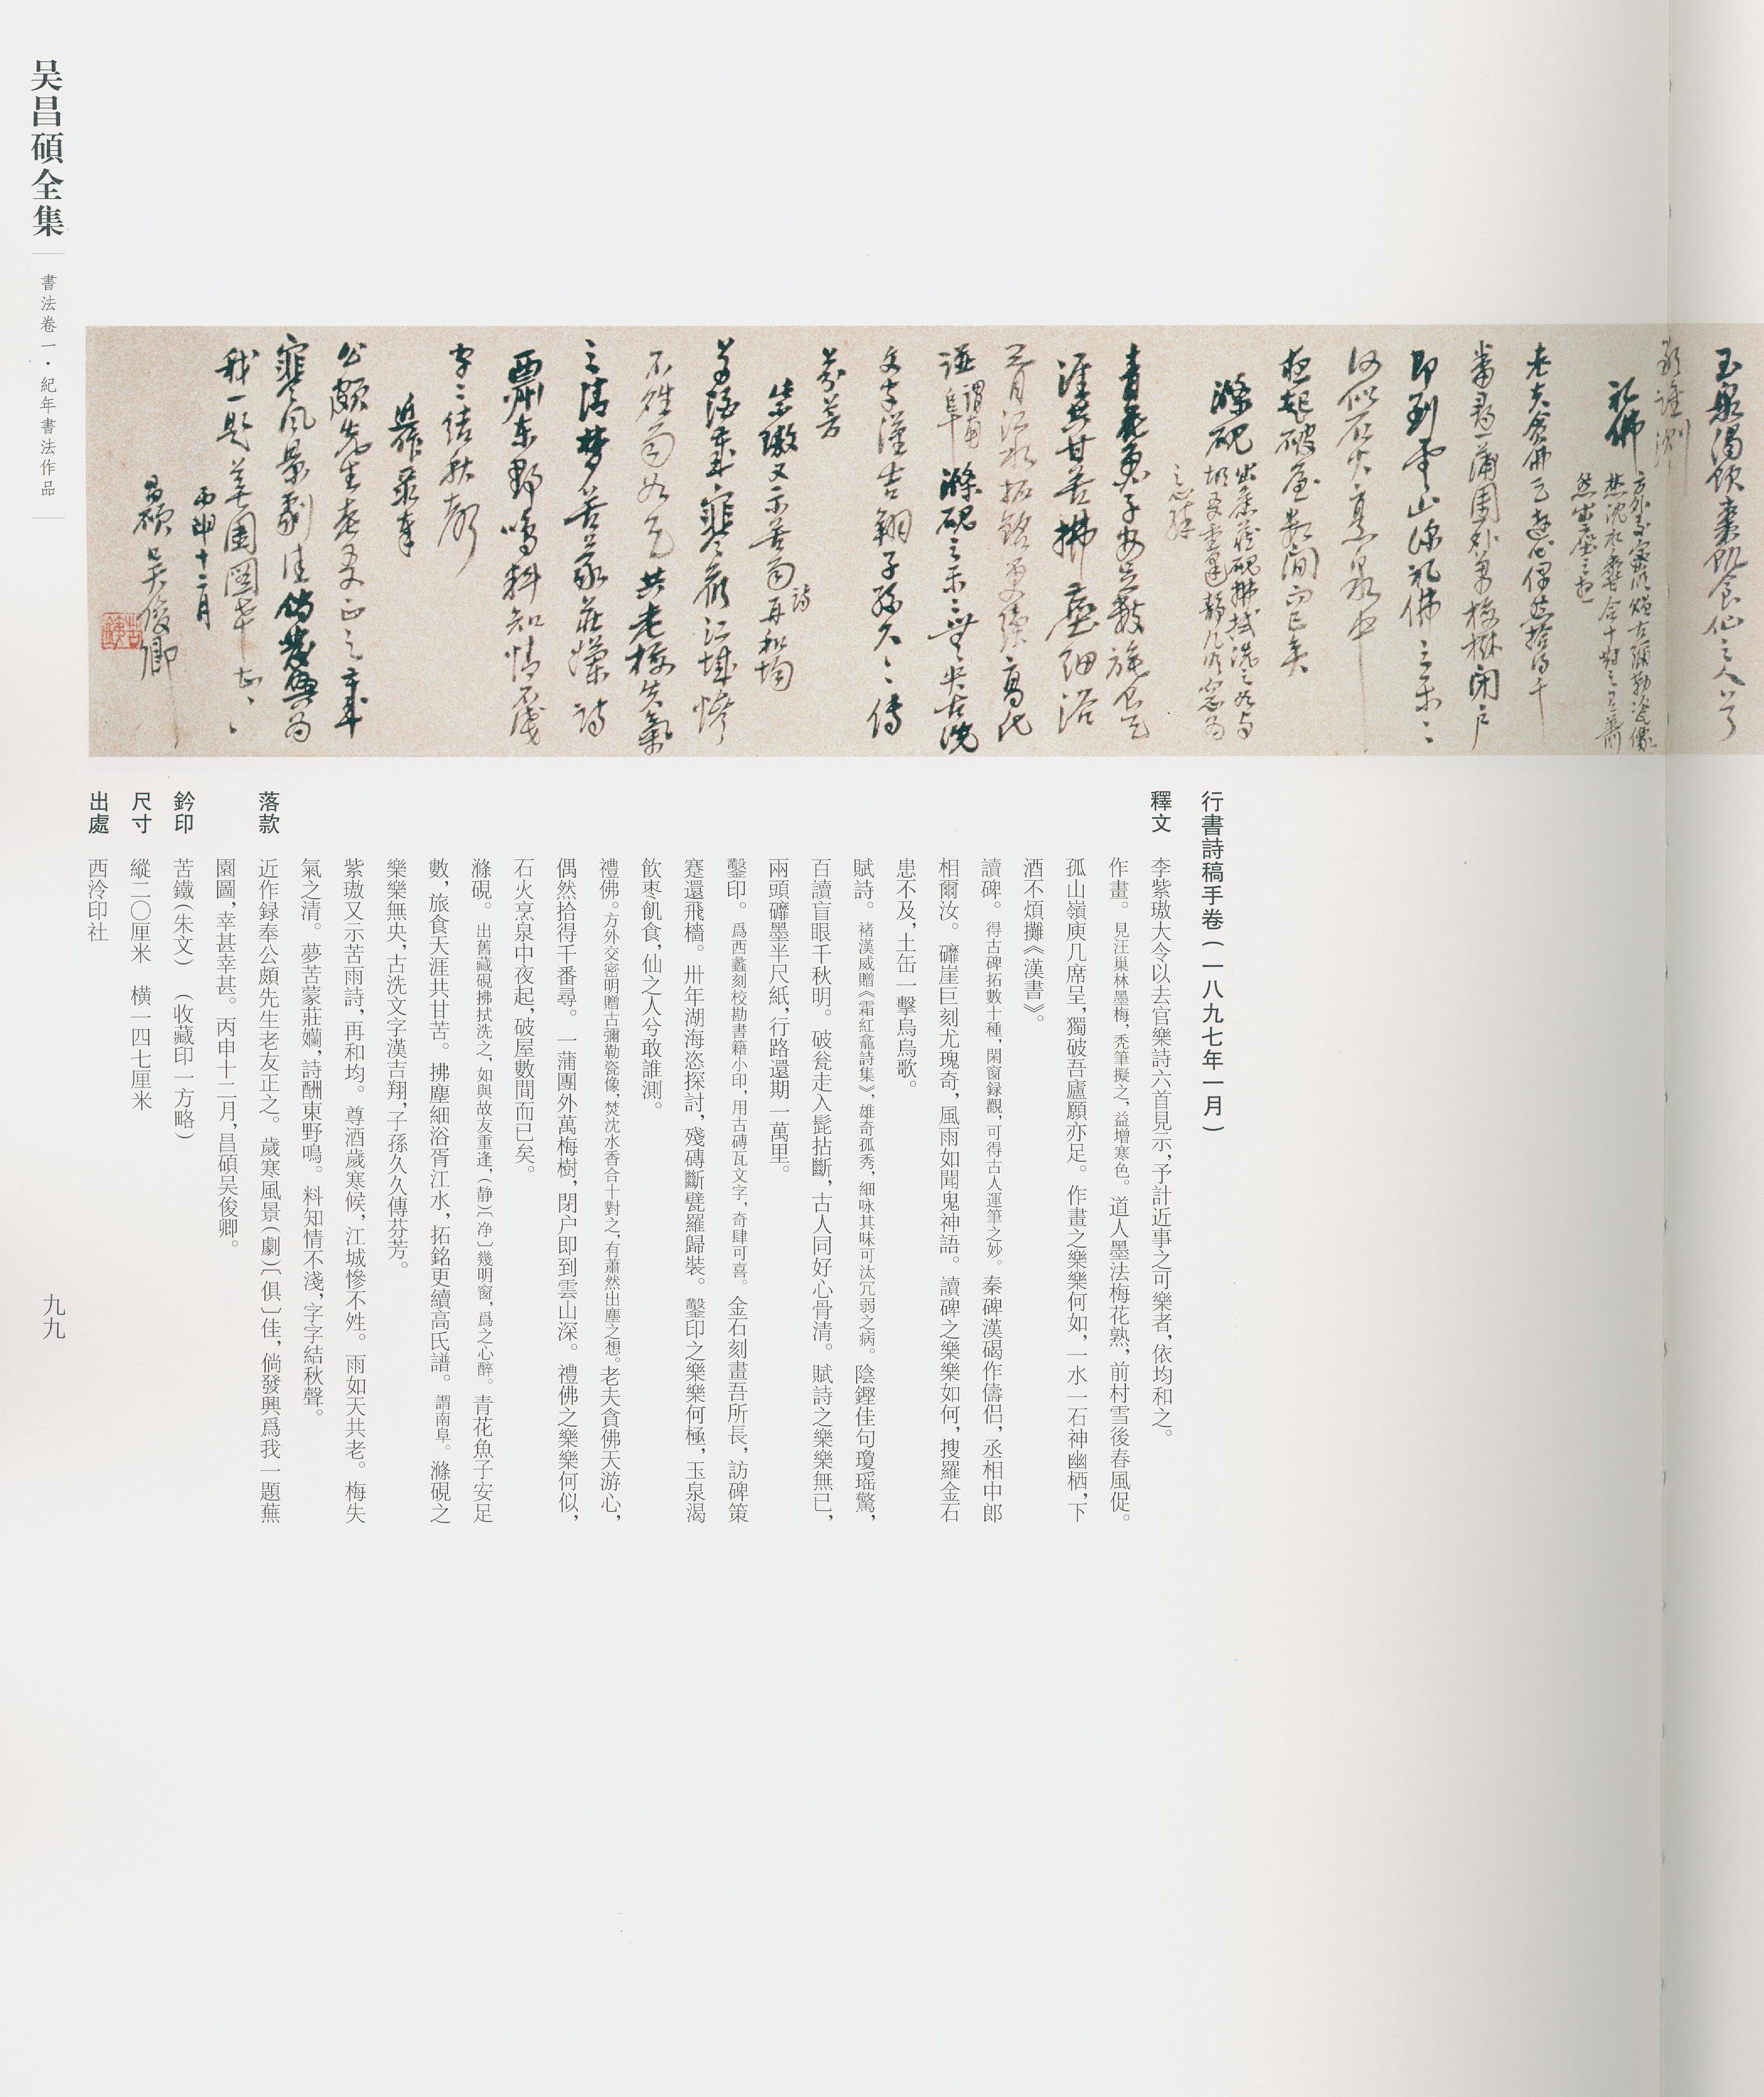 玉泉渴飲棗飢食仙之人兮
敢誰測
礼佛 方外交密明贈古彌勒瓷像
焚沈水香合十對之有蕭
然出塵之想
老夫貪佛天游心偶然拾得千
番尋一蒲團外萬梅樹閉戶
即到雲山深礼佛之樂〻
何似石火烹泉中
夜起破屋數間而已矣
滌硯 出舊藏硯拂拭洗之如與
故友重逢靜几明窗為
之心醉
青花魚子安足數旅食天
涯共甘苦拂塵細浴
胥江水拓銘更續高氏
譜 謂南阜 滌硯之樂〻無央古洗
文字漢吉翔子孫久〻傳
芬芳
紫璈又示苦雨詩再和均
尊酒歲寒候江城慘
不姓雨如天共老梅失氣
之清夢苦蒙莊嬾詩
酬東野鳴料知情不淺
字〻結秋聲
近作录奉
公頗先生老友正之歲
寒風景劇佳倘發興為
我一題蕪園圖幸甚〻〻
丙申十二月
昌碩吳俊卿
苦鐵
行書詩稿手卷（一八九七年一月）
釋文 李紫璈大令以去官樂詩六首見示，予計近事之可樂者，依均和之。
作畫。見汪巢林墨梅，禿筆擬之，益增寒色。道人墨法梅花熟，前村雪後春風促。
孤山嶺庾几席呈，獨破吾廬願亦足。作畫之樂樂何如，一水一石神幽栖，下
酒不煩攤《漢書》。
讀碑。得古碑拓數十種，閑窗録觀，可得古人運筆之妙。秦碑漢碣作儔侣，丞相中郎
相爾汝。礳崖巨刻尤瑰奇，風雨如聞鬼神語。讀碑之樂樂如何，搜羅金石
患不及，土缶一擊烏烏歌。
賦詩。褚漢威贈《霜紅龕詩集》，雄奇孤秀，細咏其味可汰冗弱之病。陰鏗佳句瓊瑶驚，
百讀盲眼千秋明。破瓮走入髭拈斷，古人同好心骨清。賦詩之樂樂無已，
兩頭礳墨半尺紙，行路還期一萬里。
鑿印。爲西蠡刻校勘書籍小印，用古磚瓦文字，奇肆可喜。金石刻畫吾所長，訪碑策
蹇還飛檣。卅年湖海恣探討，殘磚斷甓羅歸裝。鑿印之樂樂何極，玉泉渴
飲枣飢食，仙之人兮敢誰測。
禮佛。方外交密明贈古彌勒瓷像，焚沈水香合十對之，有蕭然出塵之想。老夫貪佛天游心，
偶然拾得千番尋。一蒲團外萬梅樹，閉户即到雲山深。禮佛之樂樂何似，
石火烹泉中夜起，破屋數間而已矣。
滌硯。出舊藏硯拂拭洗之，如與故友重逢，（静）〔净〕幾明窗，爲之心醉。青花魚子安足
數，旅食天涯共甘苦。拂塵細浴胥江水，拓銘更續高氏譜。謂南阜。滌硯之
樂樂無央，古洗文字漢吉翔，子孫久久傳芬芳。
紫璈又示苦雨詩，再和均。尊酒歲寒候，江城慘不姓。雨如天共老。梅失
氣之清。夢苦蒙莊嬾，詩酬東野鳴。料知情不淺，字字結秋聲。
落款 近作録奉公頗先生老友正之。歲寒風景（劇）〔俱〕佳，倘發興爲我一題蕪
園圖，幸甚幸甚。丙申十二月，昌碩吴俊卿。
鈐印 苦鐵（朱文） （收藏印一方略）
尺寸 縱二〇厘米 橫一四七厘米
出處 西泠印社
吴昌碩全集
書法卷一・紀年書法作品
九九